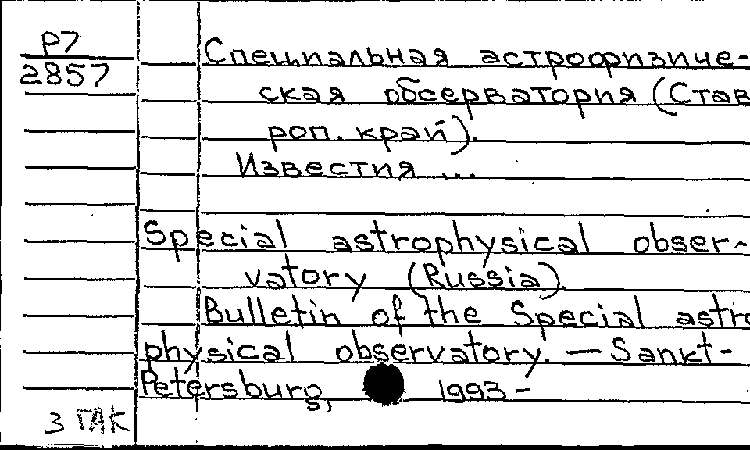 P7
2857
Специальная астрофизиче-
ская обсерватория (Став
роп. край).
Известия ...
Special astrophysical obser-
vatory (Russia).
Bulletin of the Special astro
physical observatory. — Sankt-
Petersburg, 1993 -
3 ГАК